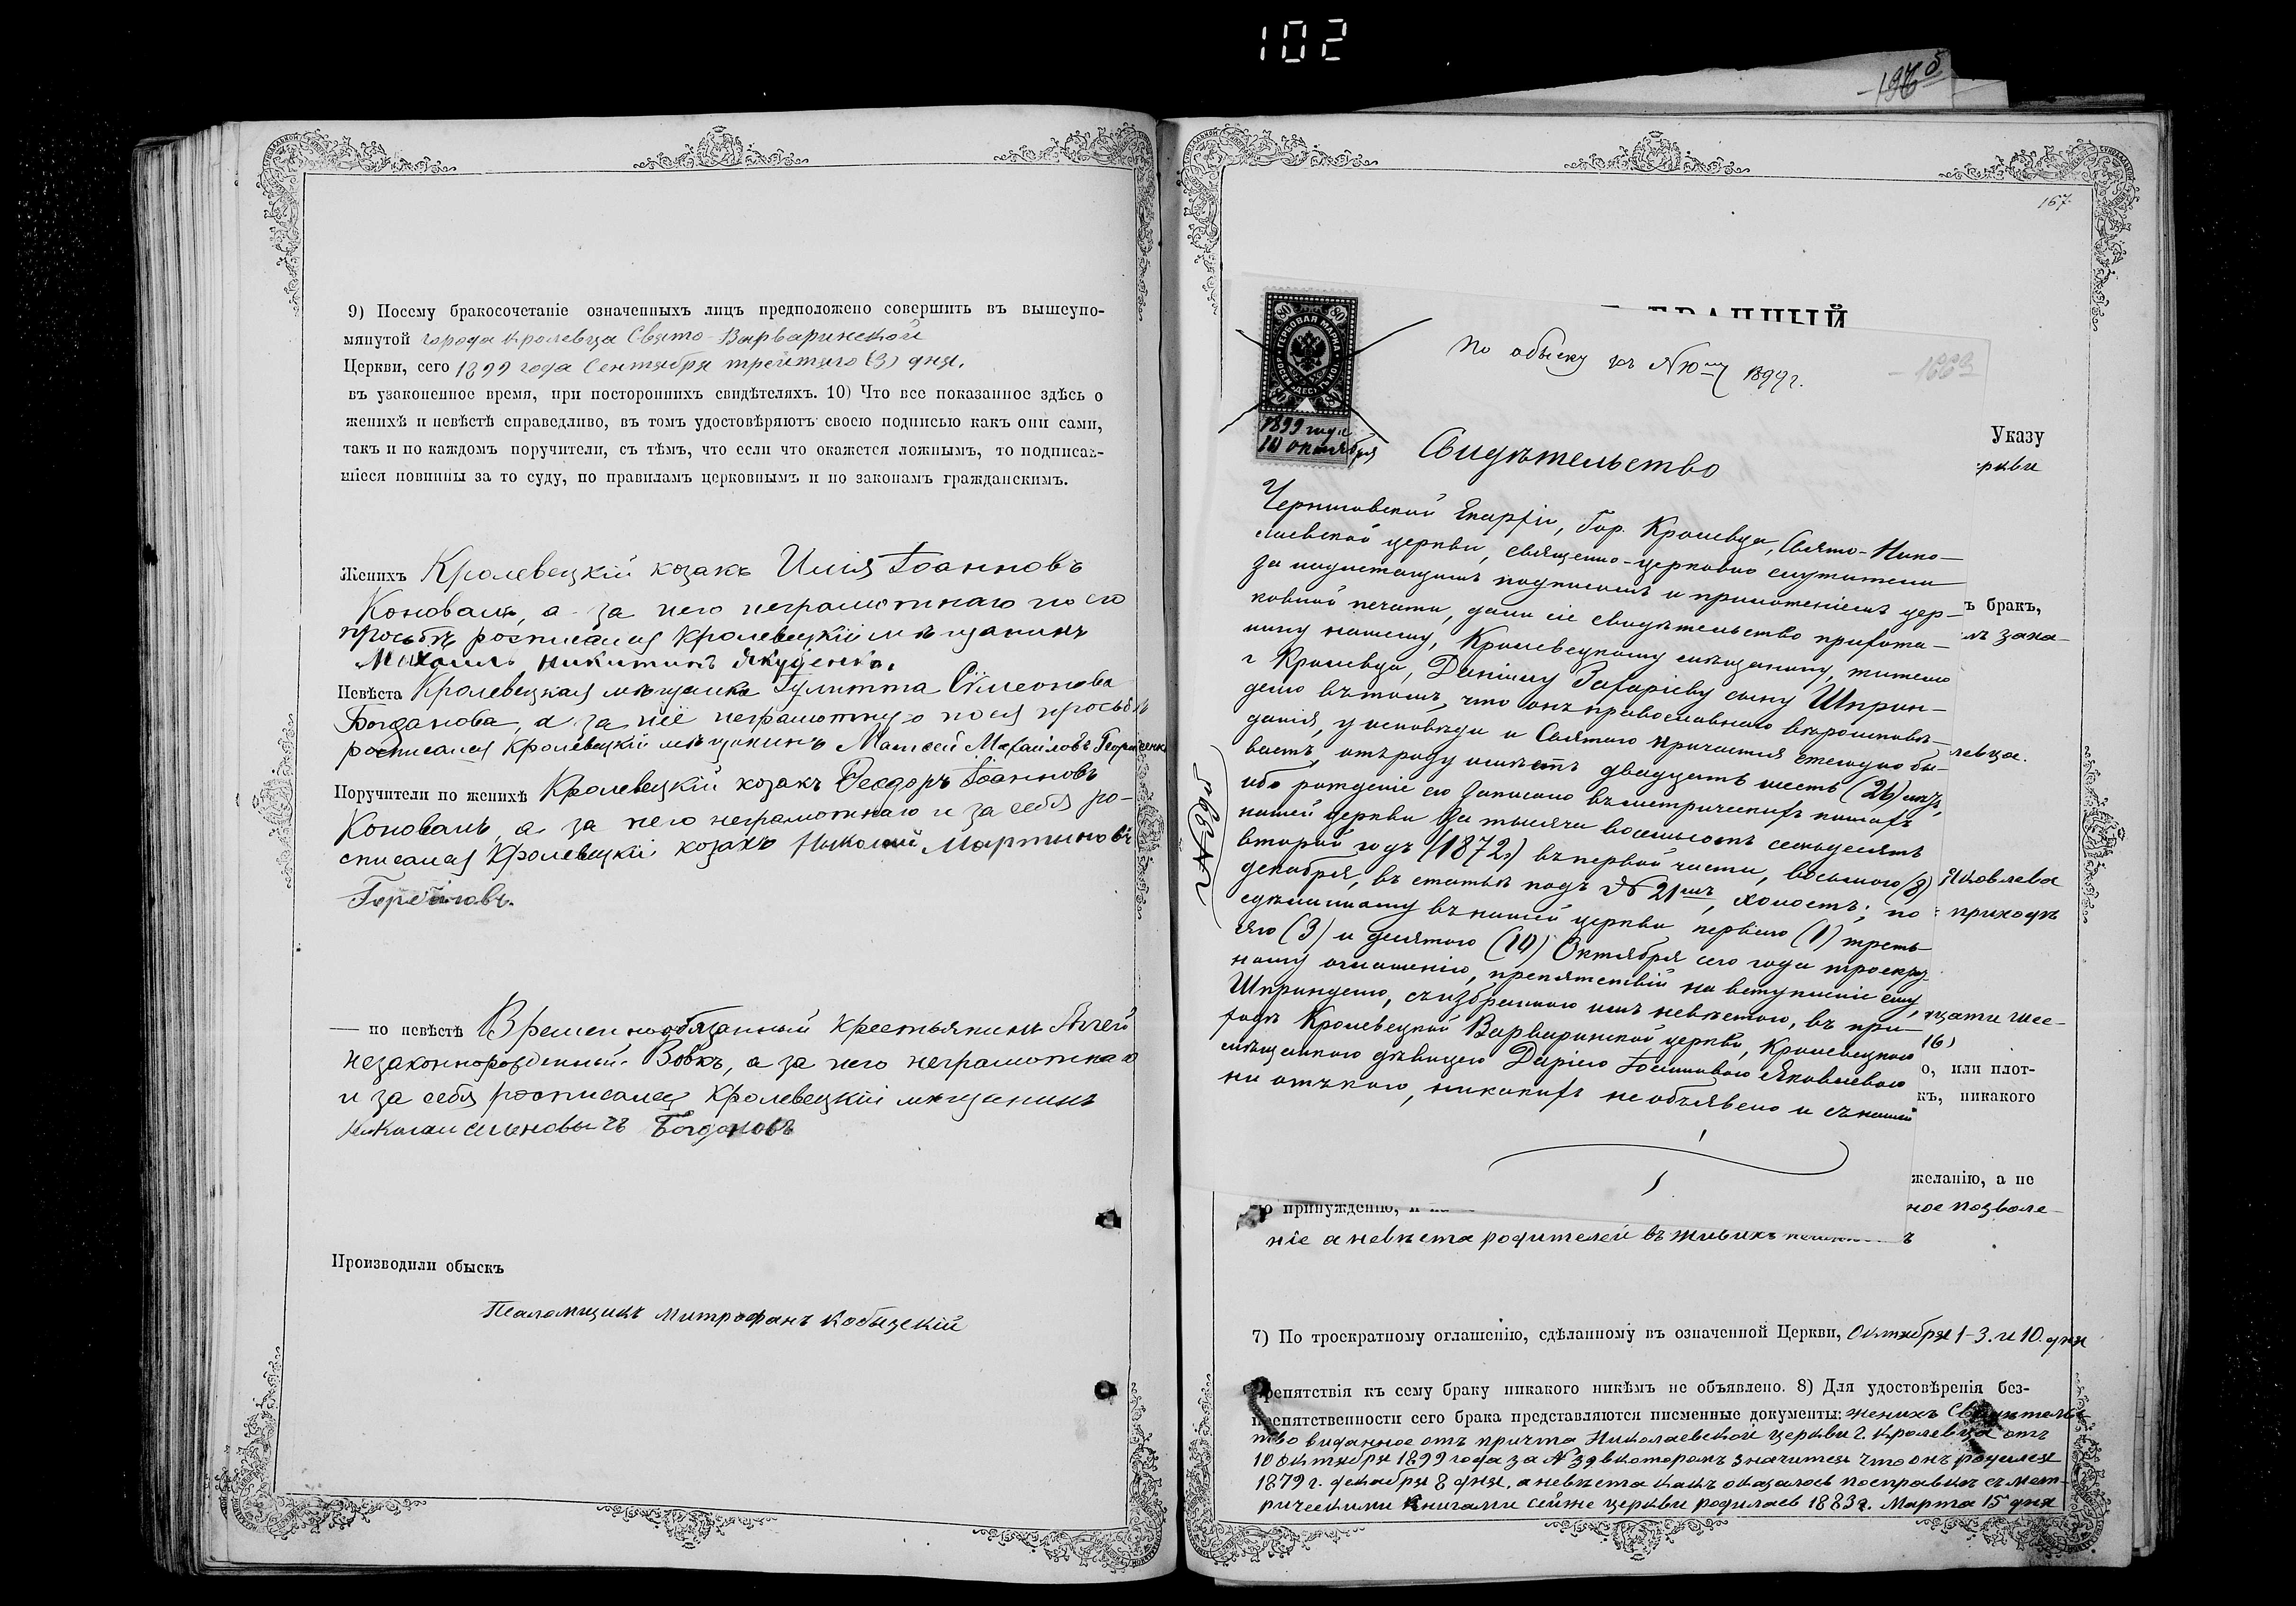 102
9) Посему бракосочетаніе означенныхъ лицъ предположено совершить въ вышеупо-
мянутой города Кролевца Свято-Варваринской
Церкви, сего 1899 года Сентября третьяго (3) дня.
въ узаконенное время, при постороннихъ свидѣтеляхъ. 10) Что все показанное здѣсь о
женихѣ и невѣстѣ справедливо, въ томъ удостовѣряютъ своею подписью какъ они сами,
такъ и по каждомъ поручители, съ тѣмъ, что если что окажется ложнымъ, то подписав-
шіеся повинны за то суду, по правиламъ церковнымъ и по законамъ гражданскимъ.
Женихъ Кролевецкій козакъ Илія Іоанновъ
Коноваля, а за него неграмотнаго по его
просьбѣ росписался Кролевецкій мѣщанинъ
Михаилъ Никитинъ Якуценко.
Невѣста Кролевецкая мѣщанка Іулитта Симеонова
Богданова, а за неё неграмотную по ея просьбѣ
росписался Кролевецкій мѣщанинъ Моисей Михаиловъ
Поручители по женихѣ Кролевецкій козакъ Ѳеодоръ Іоанновъ
Коноваль, а за него неграмотнаго и за себя ро-
списался Кролевецкій козакъ Николай Мартиновъ
— по невѣстѣ Временнообязанный крестьянинъ
незаконнорожденный Вовкъ, а за него неграмотнаго
и за себя росписался Кролевецкій мѣщанинъ
Николай Богдановъ
Производили обыскъ
Псаломщикъ Митрофанъ Кобызскій
167
По обыску къ № 1899 г.
1899 года
10 октября
Свидѣтельство
Указу
ркви
Черниговской Епархіи, Гор. Кролевца, Свято-Нико-
лаевской церкви, священно-церковно служители
за нижеслѣдующимъ подписомъ и приложеніемъ цер-
ъ бракъ,
ковной печати, дали сіе свидѣтельство прихожа-
мъ зако-
нину нашему, Кролевецкому мѣщанину, жителю
г Кролевца, Даніилу Захаріеву сыну Шприн-
делю въ томъ, что онъ православнаго вѣроисповѣ-
данія, у исповѣди и Святаго причастія ежегодно бы-
левца.
ваетъ, отъ роду имѣетъ двадцать шесть (26) лѣтъ,
ибо рожденіе его записано въ метрическихъ книгахъ
нашей церкви за тысяча восемьсотъ семьдесятъ
второй годъ (1872 г.) въ первой части, восьмого (8)
Яковлева
декабря, въ статьѣ подъ № 21мъ, холостъ; по
приходѣ
сдѣланному въ нашей церкви перваго (1) треть-
яго (3) и десятого (10) Октября сего года троекрат-
ному оглашенію, препятствій на вступленіе ему,
Шпринделю, съ избранною имъ невѣстою, въ при-
цати шес-
ходѣ Кролевецкой Варваринской церкви, Кролевецкою
16)
мѣщанкою дѣвицею Даріею Іоанновою Яковлевою
о, или плот-
ни отъ кого, никакихъ не объявлено и съ нашей
къ, никакого
желанію, а не
по принужденію, и
ное позволе-
ніе а невѣста родителей въ живыхъ
7) По троекратному оглашенію, сдѣланному въ означенной Церкви, Октября 1-3. и 10. дня
препятствія къ сему браку никакого никѣмъ не объявлено. 8) Для удостовѣренія без-
препятственности сего брака представляются писменные документы: женихъ Свидѣтель-
тво виданное отъ причта Николаевской церкви г. Кролевца отъ
10 октября 1899 года за № 39 вкоторомъ значится что онъ родился
1879 г. декабря 8 дня, а невѣста какъ оказалось посправкѣ съ мет-
рическими книгами сейже церкви родилась 1883 г. Марта 15 дня